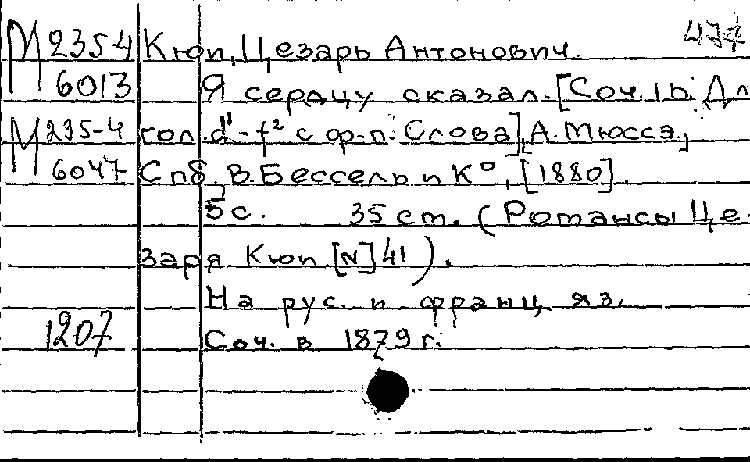 М 235-4 Кюи, Цезарь Антонович.
6013 Я сердцу сказал. [Соч. 1b. Дл
М 235-4 гол. d¹-f² с ф-п. Слова], А. Мюссэ,
6047 Спб, В. Бессель и К°, [1880].
5 с. 35 см. (Романсы Це-
заря Кюи [N] 41).
На рус. и франц. яз.
1207 Соч. в 1879 г.